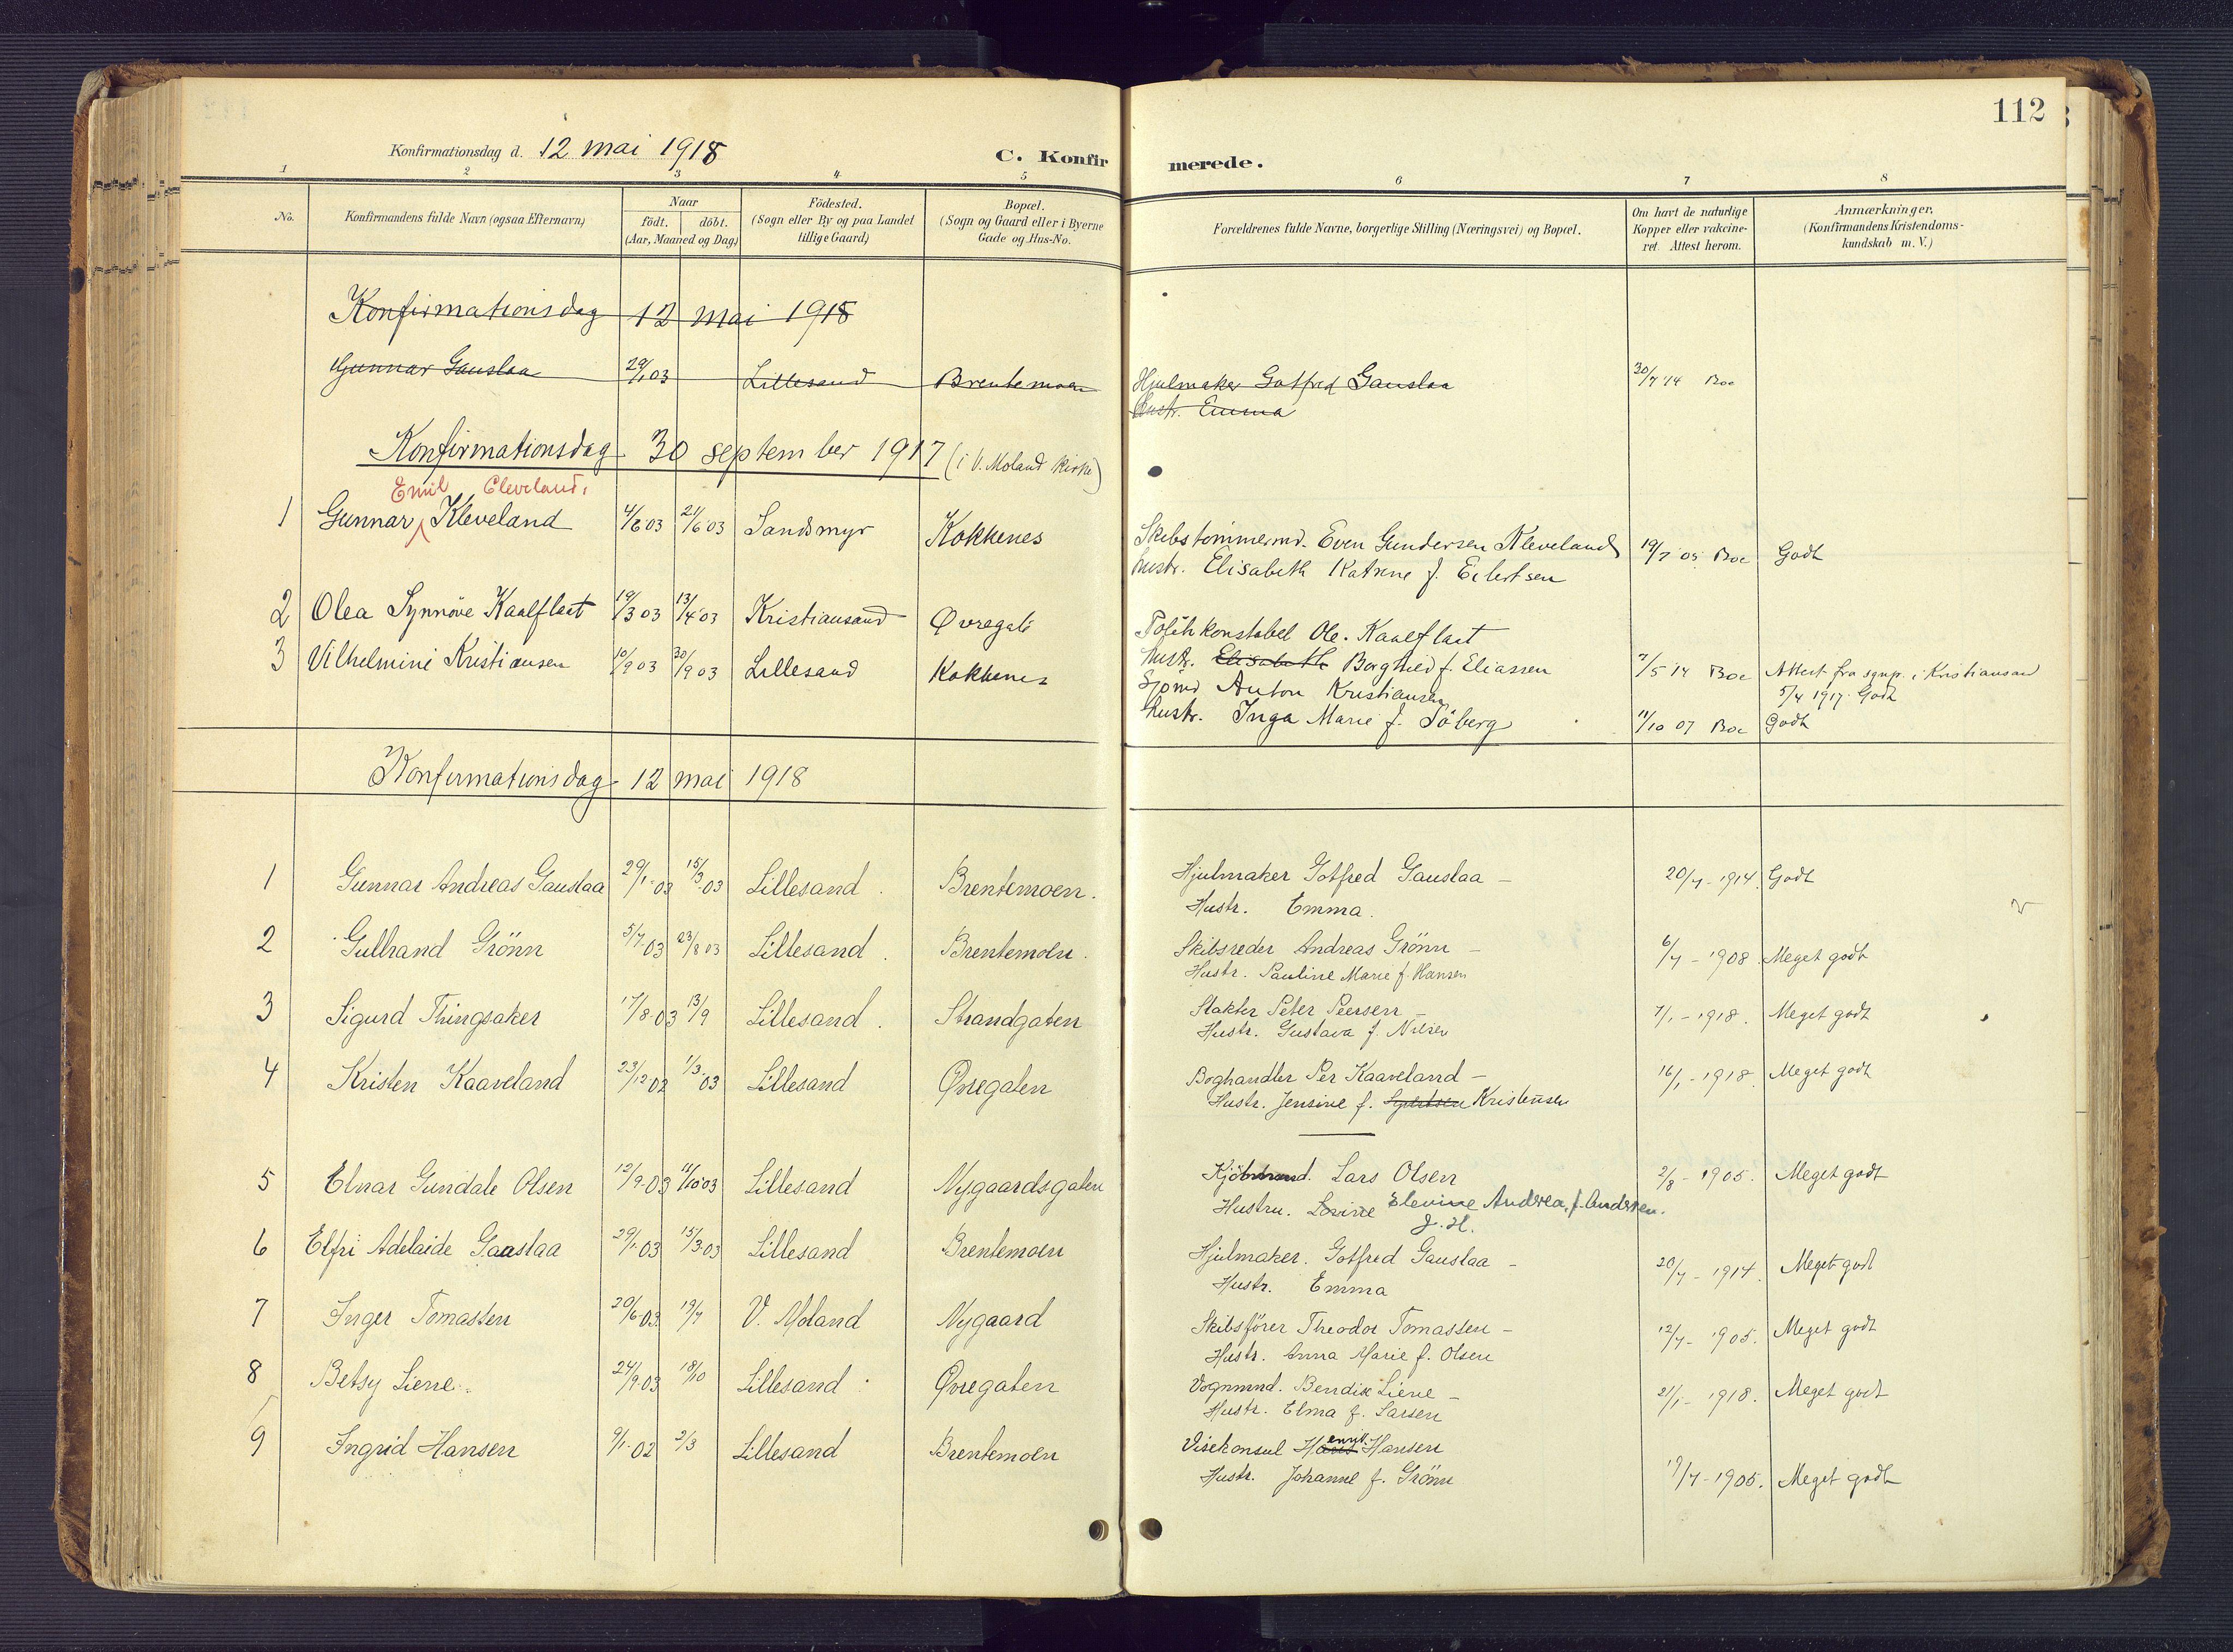 112
Konfirmationsdag d. 12 mai 1918
C. Konfirmerede.
1 2 3 4 5 6 7 8
No. Konfirmandens fulde Navn (ogsaa Efternavn) Naar födt. döbt. (Aar, Maaned og Dag) Födested. (Sogn eller By og paa Landet tillige Gaard) Bopæl. (Sogn og Gaard eller i Byerne Gade og Hus-No. Forældrenes fulde Navne, borgerlige Stilling (Næringsvei) og Bopæl. Om havt de naturlige Kopper eller vakcineret. Attest herom. Anmærkninger. (Konfirmandens Kristendomskundskab m. V.)
Konfirmationsdag 12 mai 1918
Gunnar Gauslaa 29/1 03 Lillesand Brentemoen Hjulmaker Gotfred Gauslaa 30/7 14 Boe
Hustr. Emma
Konfirmationsdag 30 september 1917 (i V. Moland kirke)
Emil Cleveland.
1 Gunnar Kleveland 4/6 03 21/6 03 Sandsmyr Kokkenes Skibstømmermd. Even Gundersen Kleveland 19/7 05 Boe Godt
hustr. Elisabeth Katrine f. Eilertsen
2 Olea Synnöve Kaalflaat 19/3 03 13/4 03 Kristiansand Øvregate Politikonstabel Ole. Kaalflaat
hustr. Elisabeth Borghild f. Eliassen 7/5 14 Boe Attest fra sgnp. i Kristiansand
5/4 1917. Godt
3 Vilhelmine Kristiansen 10/9 03 20/9 03 Lillesand Kokkenes Sjömd Anton Kristiansen
hustr. Inga Marie f. Söberg 11/10 07 Boe Godt
Konfirmationsdag 12 mai 1918
1 Gunnar Andreas Gauslaa 29/1-03 15/3 03 Lillesand. Brentemoen. Hjulmaker Gotfred Gauslaa - 20/7-1914. Godt
Hustr. Emma.
2 Gulbrand Grönn 5/7 03 23/8 03 Lillesand. Brentemoen. Skibsreder Andreas Grönn - 6/7-1908 Meget godt
Hustr. Pauline Marie f. Hansen
3 Sigurd Thingsaker 17/8-03 13/9 Lillesand. Strandgaten Peter Peersen - 7/1-1918. Meget godt
Hustr. Gustava f. Nilsen
4 Kristen Kaaveland 23/12-02 1/3-03 Lillesand Øvregaten Boghandler Per Kaaveland - 16/1-1918. Meget godt
Hustr. Jensine f. Kristensen
5 Elnar Gundale Olsen 12/9-03 11/10 03 Lillesand Nygaardsgaten Kjöbmand. Lars Olsen 2/8-1905. Meget godt
Hustru. Lovise Elevine Andrea, f. Andersen.
J. H.
6 Elfri Adelaide Gauslaa 29/1-03 15/3-03 Lillesand Brentemoen Hjulmaker. Gotfred Gauslaa - 20/7-1914. Meget godt
Hustr. Emma
7 Inger Tomassen 20/6-03. 19/7 V. Moland Nygaard Skibsförer Theodor Tomassen - 12/7-1905. Meget godt
Hustr. Anna Marie f. Olsen
8 Betsy Liene. 24/9-03 18/10 Lillesand. Øvregaten Vognmnd. Bendix Liene - 21/1-1918. Meget godt
Hustr. Elma f. Larsen
9 Ingrid Hansen 9/1-02 2/3 Lillesand Brentemoen Visekonsul Henrik Hansen
Hustr. Johanne f. Grönn 19/7-1905. Meget godt